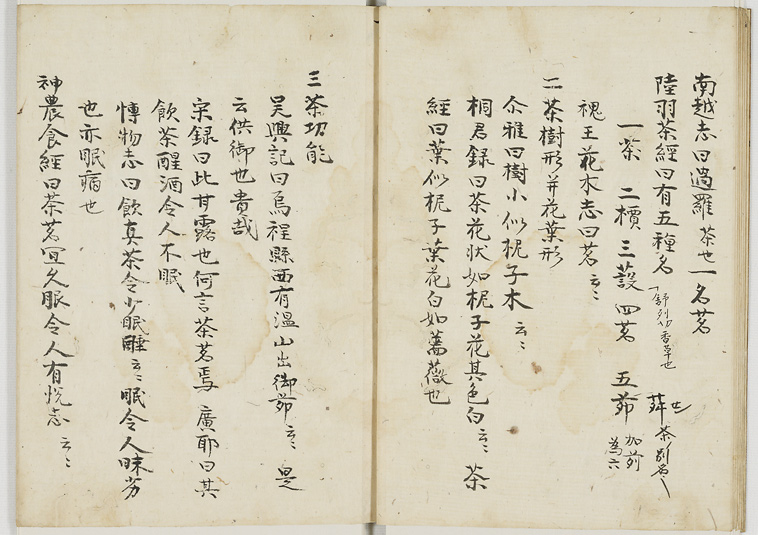 南越志曰過羅茶也一名茗
陸羽茶經曰有五種名
舒列切香草也
蕣也茶ノ別名
一茶 二檟 三蔎 四茗 五荈
加前為六
魏王花木志曰茗云々
二茶樹形并花葉形
尒雅曰樹小似梔子木云々
桐君錄曰茶花状如梔子花其色白云々 茶
經曰葉似梔子葉花白如薔薇也
三茶功能
吴興記曰烏程縣西有温山出御荈云々 是
云供御也貴哉
宋録曰此甘露也何言茶茗焉 廣邪曰其
飲茶醒酒令人不眠
愽物志曰飲真茶令少眠睡云々眠令人昧劣
也亦眠病也
神農食經曰茶茗冝久服令人有悦志云々